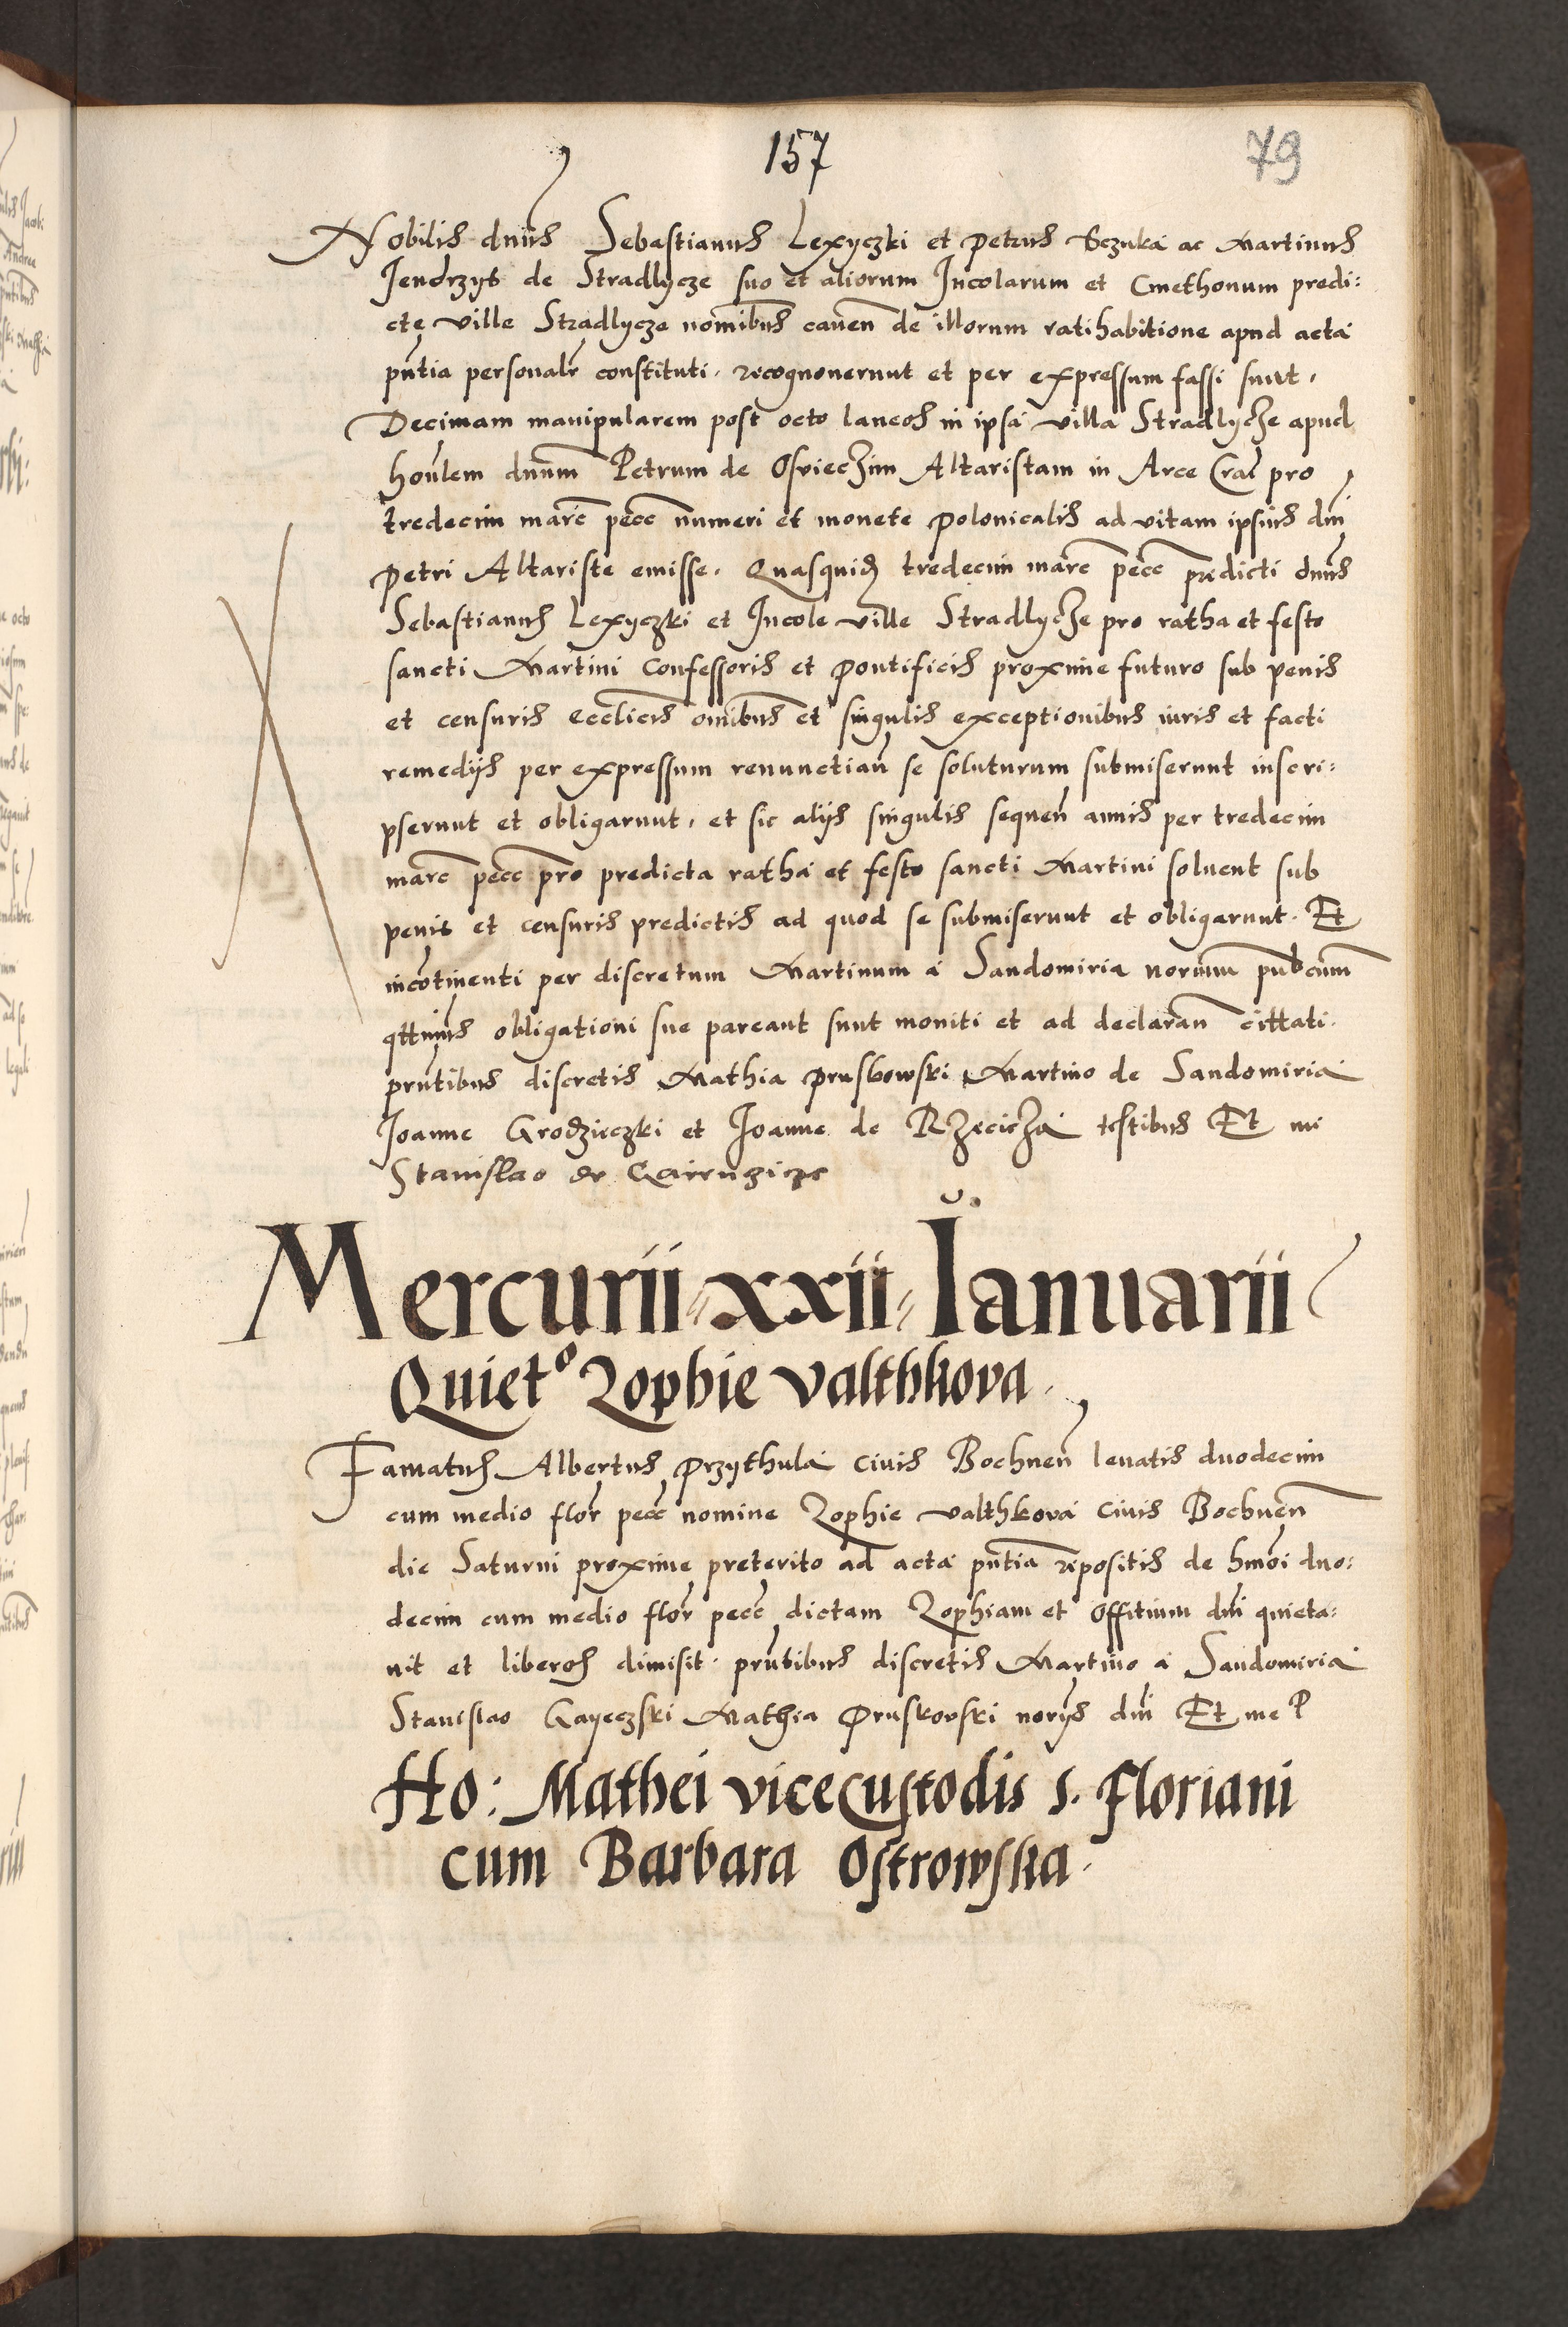 157
79
Nobilis dnus Sebastianus Lexyczki et Petrus Sczuka ac Martinus
Jendrzys de Stradlycze suo et aliorum Incolarum et Cmethonum predi:
cte ville Stradlycze nomibus caven de illorum ratihabitione apud acta
pntia personalr constituti. recognouerunt et per expressum fassi sunt.
Decimam manipularem post octo laneos in ipsa villa Stradlycze apud
honlem dnum Petrum de Osvieczim Altaristam in Arce Crac pro
tredecim marc pecc numeri et monete Polonicalis ad vitam ipsius dni
Petri Altariste emisse. Quasquid tredecim marc pecc predicti dnus
Sebastianus Lexyczki et Incole ville Stradlycze pro ratha et festo
sancti Martini Confessoris et Pontificis proxime futuro sub penis
et censuris ecclicis omibus et singulis exceptionibus iuris et facti
remedijs per expressum renunctian se soluturum submiserunt inscri:
pserunt et obligarunt. et sic alijs singulis sequen annis per tredecim
marc pecc pro predicta ratha et festo sancti Martini soluent sub
penis et censuris predictis ad quod se submiserunt et obligarunt. Et
incotinenti per discretum Martinum a Sandomiria norium pubcum
qttinus obligationi sue pareant sunt moniti et ad declaran cittati.
prntibus discretis Mathia Pruskowski Martino de Sandomiria
Joanne Grodzieczki et Joanne de Rzeczicza testibus Et mi
Stanislao de
Mercurii xxii Ianuarii
Quiet° Zophie Valthkova.
Famatus Albertus Przythula Ciuis Bochnen leuatis duodecim
cum medio flor pecc nomine Zophie Valthkova Ciuis Bochnen
die Saturni proxime preterito ad acta pntia repositis de hmoi duo:
decim cum medio flor pecc dictam Zophiam et Offitium dni quieta:
uit et liberos dimisit. prntibus discretis Martino a Sandomiria
Stanislao Gayeczski Mathia Pruskovski norijs dni Et me P
Ho: Mathei vicecustodis S. Floriani
cum Barbara Ostrowska.